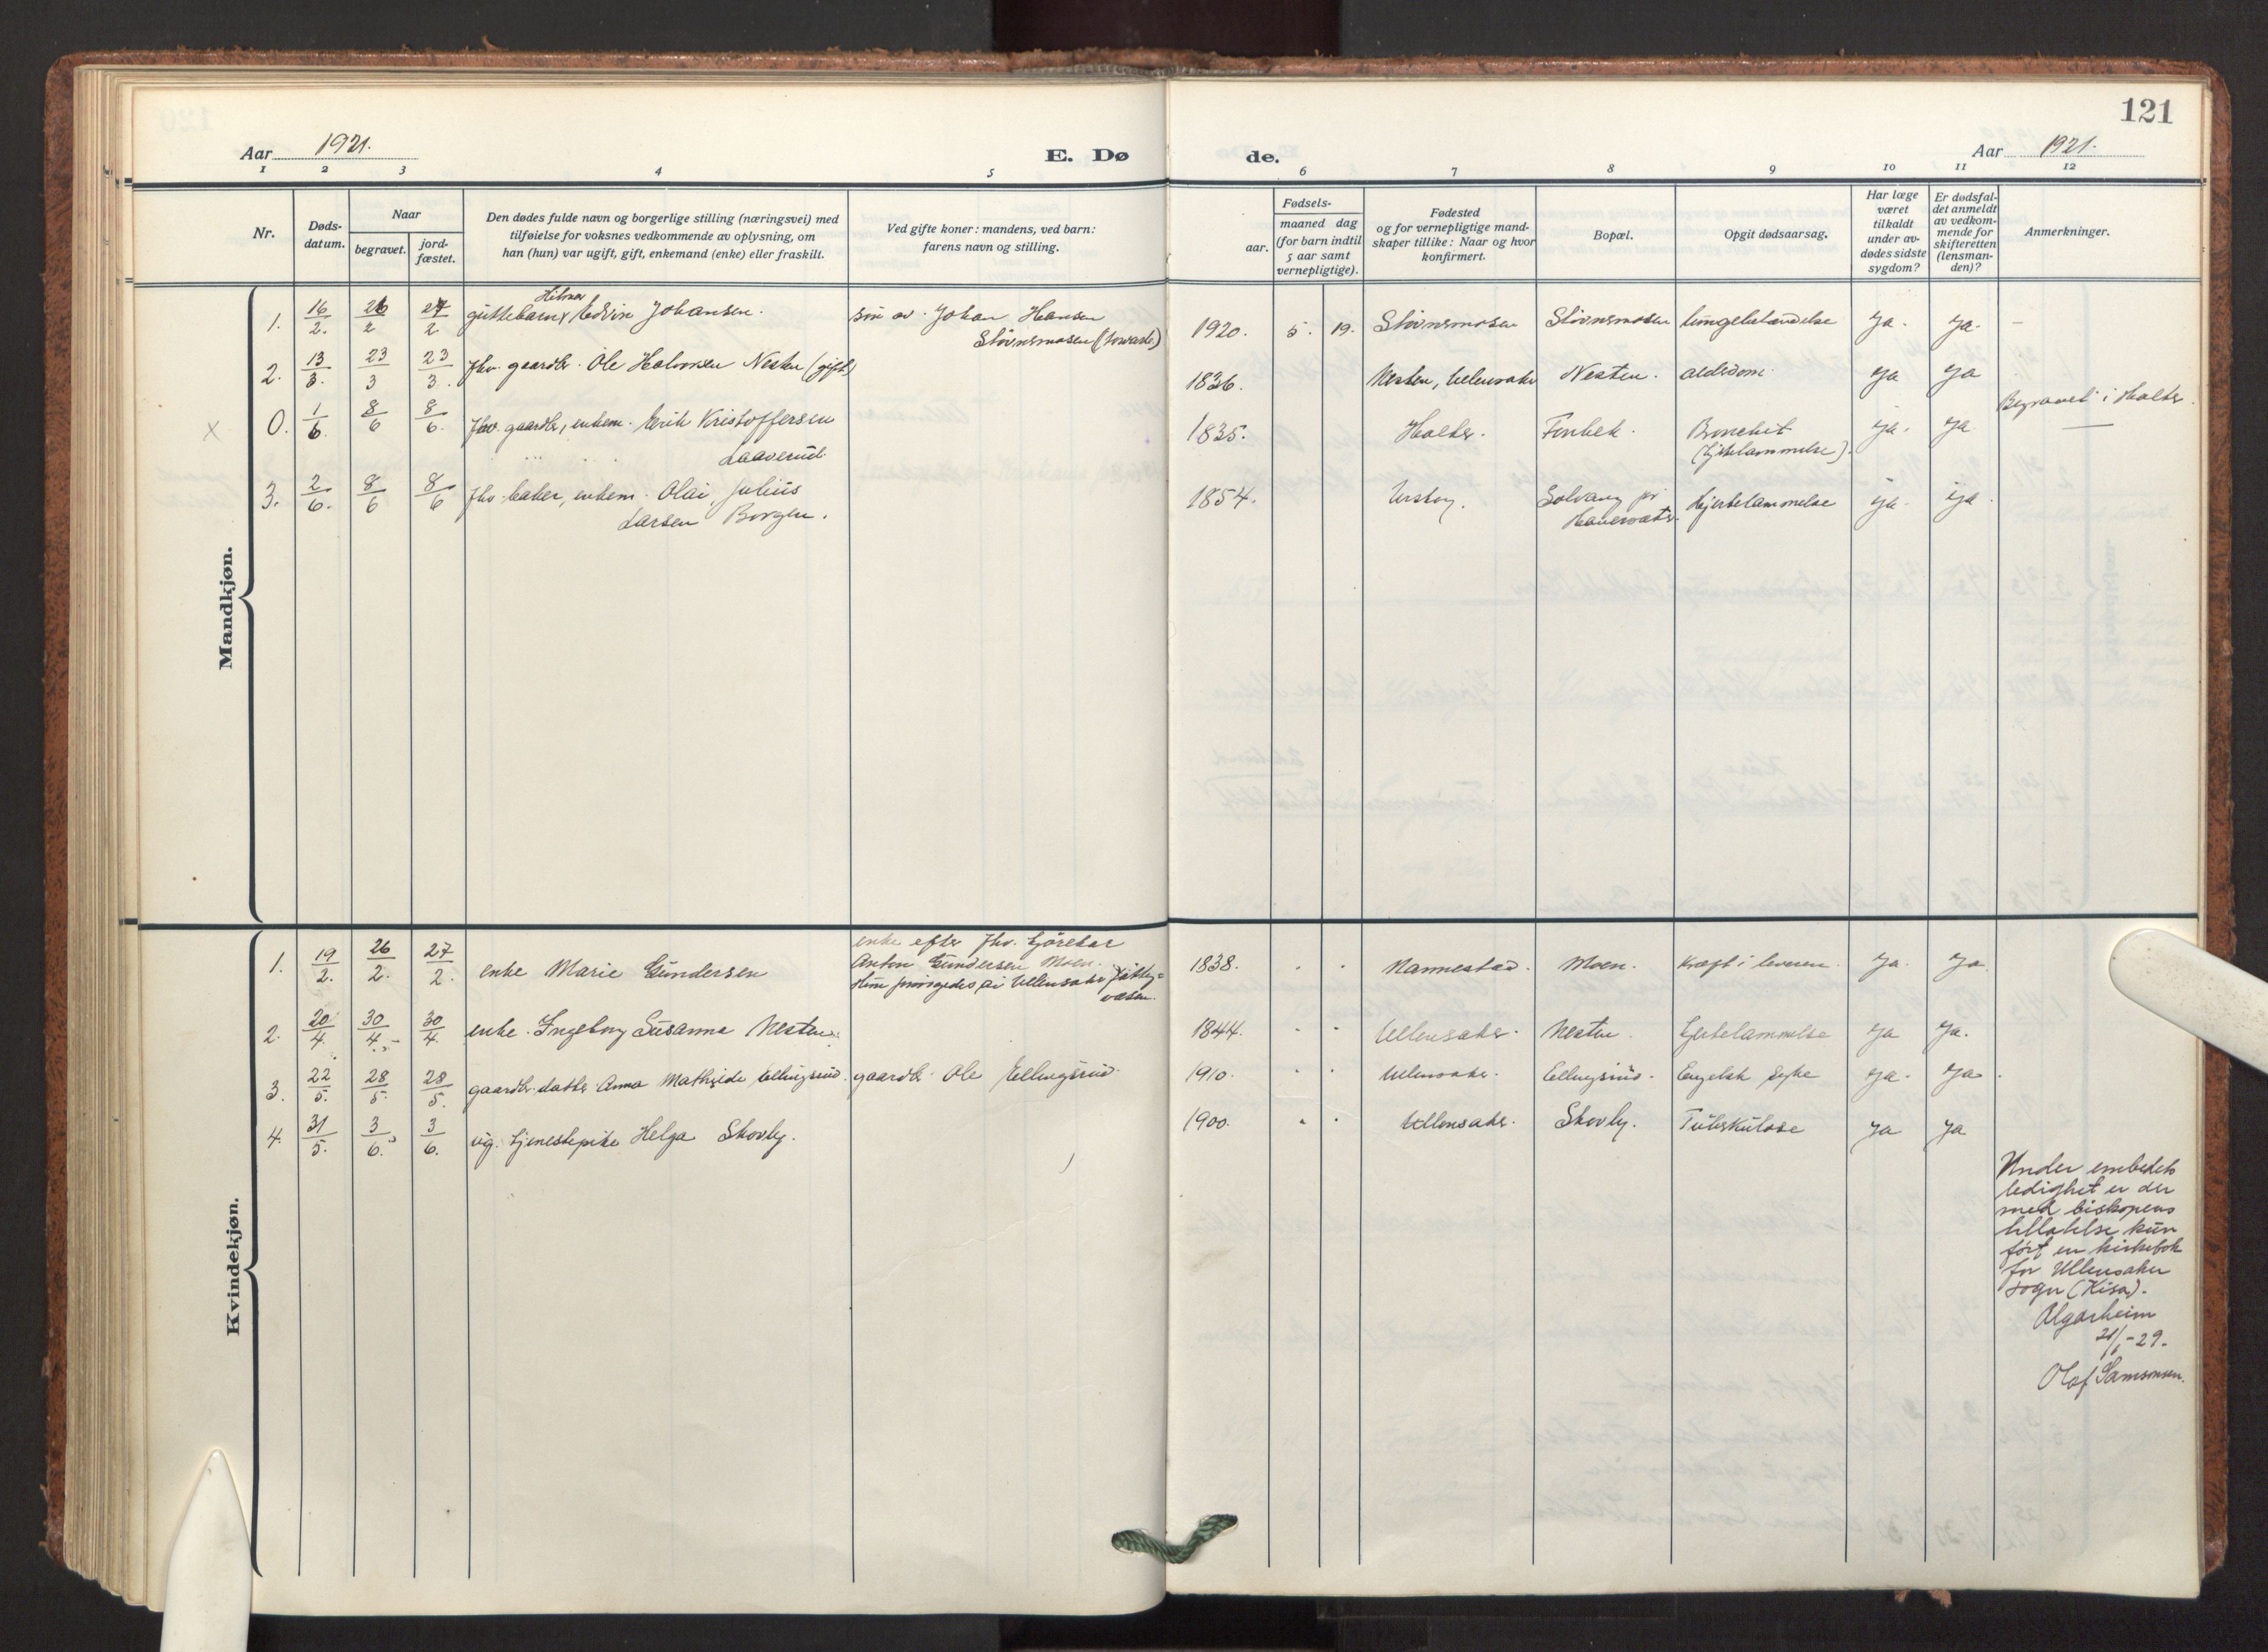 121
Aar 1921.
E. Dø
de.
Aar 1921.
1 2 3 4 5 6 7 8 9 10 11 12
Nr.
Døds-
datum.
Naar
begravet.
jord-
fæstet.
Den dødes fulde navn og borgerlige stilling (næringsvei) med
tilføielse for voksnes vedkommende av oplysning, om
han (hun) var ugift, gift, enkemand (enke) eller fraskilt.
Ved gifte koner: mandens, ved barn:
farens navn og stilling.
Fødsels-
aar.
maaned dag
(for barn indtil
5 aar samt
vernepligtige).
Fødested
og for vernepligtige mand-
skaper tillike: Naar og hvor
konfirmert.
Bopæl.
Opgit dødsaarsag.
Har læge
været
tilkaldt
under av-
dødes sidste
sygdom?
Er dødsfal-
det anmeldt
av vedkom-
mende for
skifteretten
(lensman-
den)?
Anmerkninger.
Mandkjøn.
Hilmar
1. 16/2. 26/2 27/2 guttebarn Edvin Johansen. søn av Johan Hansen 1920. 5. 19. Stovnsmosen Stovnsmosen lungebetændelse ja. ja. –
Stovnsmosen
2. 13/3. 23/3 23/3. fhv. gaardbr. Ole Halvorsen Nesten (gift) 1836. Nesten, Ullensaker Nesten. alderdom ja ja
Begravet i Holter.
x 0. 1/6. 8/6 8/6. fhv. gaardbr, enkem. Erik Kristoffersen 1835. Holter. Finbek. Bronchit ja. ja
Laaverud. (hjertelammelse).
3. 2/6. 8/6 8/6 fhv. baker, enkem. Olai Julius 1854. Solvang pr Hjertelammelse ja. ja.
Larsen Borgen.
Kvindekjøn.
enke efter fhv.
1. 19/2. 26/2. 27/2. enke Marie Gundersen Anton Gundersen Moen. 1838. Nannestad. Moen. kræft i leveren. ja. ja
Ullensaker fattig-
væsen.
2. 20/4. 30/4. 30/4. enke Ingeborg Susanne Nesten. 1844. Ullensaker. Nesten. hjertelammelse ja ja.
3. 22/5. 28/5. 28/5. gaardbr. datter Anna Mathilde Ellingsrud. gaardbr. Ole Ellingsrud 1910. Ullensaker. Ellingsrud. Engelsk syke ja. ja.
4. 31/5. 3/6. 3/6. ug. tjenestepike Helga Skovly. 1900. Ullensaker. Skovly. Tuberkulose ja ja
Under embedets
ledighet er der
med biskopens
tillatelse kun
ført en kirkebok
for Ullensaker
sogn (Kisa).
Algarheim
21/1-29.
Olaf Samsonsen.